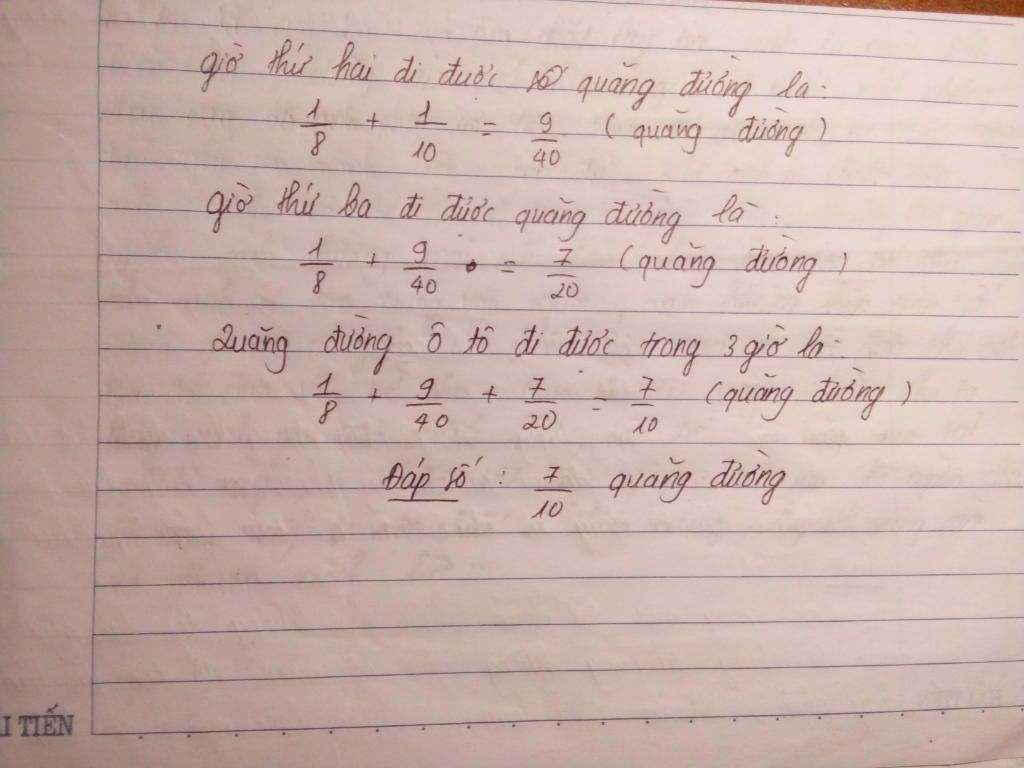 giờ thứ hai đi được số quãng đường là:
1/8 + 1/10 = 9/40 (quãng đường)
giờ thứ ba đi được quãng đường là:
1/8 + 9/40 = 7/20 (quãng đường)
Quãng đường ô tô đi được trong 3 giờ là:
1/8 + 9/40 + 7/20 = 7/10 (quãng đường)
Đáp số: 7/10 quãng đường
I TIẾN